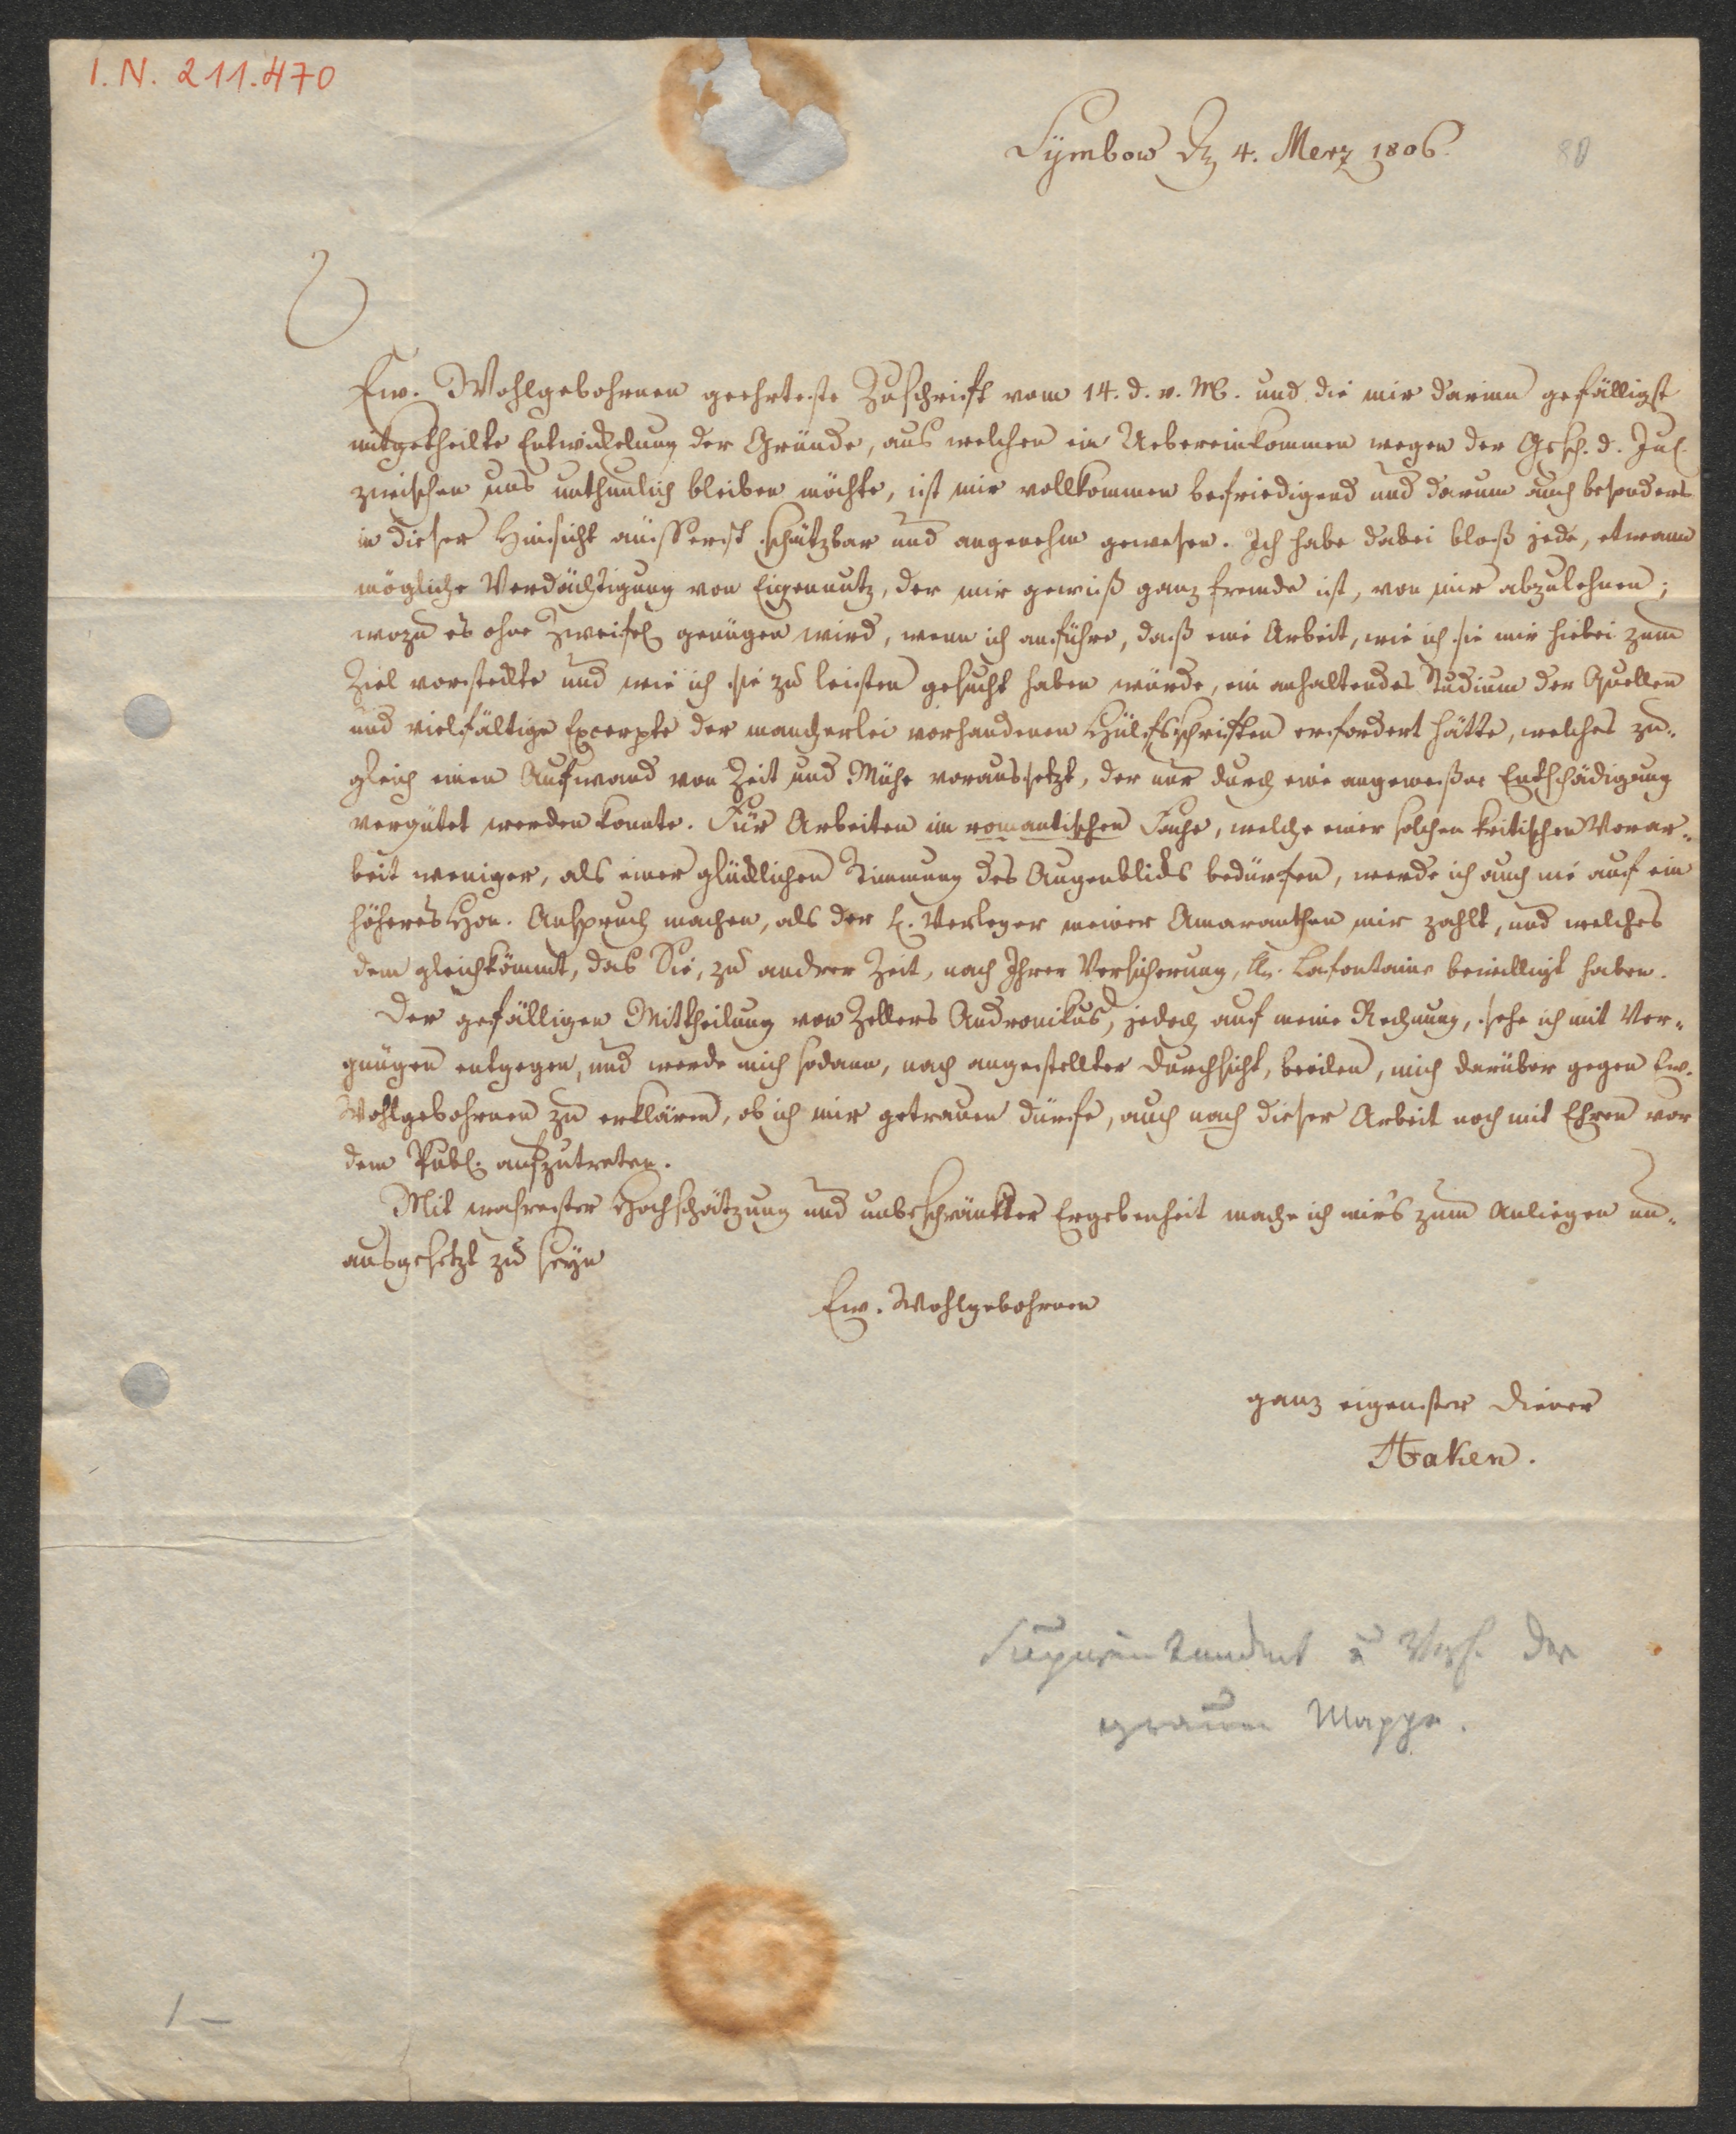 I.N. 211.470
Symbow d. 4. Merz 1806.
80
Ew. Wohlgebohrnen geehrteste Zuschrift vom 14. d. v. M. und die mir darinn gefälligst
mitgetheilte Entwickelung der Gründe, aus welchen ein Uebereinkommen wegen der Gesch. d. Jul.
zwischen uns unthunlich bleiben möchte, ist mir vollkommen befriedigend und darum auch besonders
in dieser Hinsicht äusserst schätzbar und angenehm gewesen. Ich habe dabei bloß jede, etwann
mögliche Verdächtigung von Eigennutz, der mir gewiß ganz fremde ist, von mir abzulehnen;
wozu es ohne Zweifel genügen wird, wenn ich anführe, daß eine Arbeit, wie ich sie mir hiebei zum
Ziel vorsteckte und wie ich sie zu leisten gesucht haben würde, ein anhaltendes Studium der Quellen
und vielfältige Excerpte der mancherlei vorhandenen Hülfsschriften erfordert hätte, welches zu-
gleich einen Aufwand von Zeit und Mühe voraussetzt, der nur durch eine angemeßne Entschädigung
vergütet werden konnte. Für Arbeiten im romantischen Fache, welche einer solchen kritischen Vorar-
beit weniger, als einer glücklichen Stimmung des Augenblicks bedürfen, werde ich auch nie auf ein
höheres Hon. Anspruch machen, als der H. Verleger meiner Amaranthen mir zahlt, und welches
dem gleichkömmt, das Sie, zu andrer Zeit, nach Ihrer Versicherung, Lafontaine bewilligt haben.
Der gefälligen Mittheilung von Zellers Andronikus, jedoch auf meine Rechnung, sehe ich mit Ver-
gnügen entgegen, und werde mich sodann, nach angestellter Durchsicht, beeilen, mich darüber gegen Ew.
Wohlgebohrnen zu erklären, ob ich mir getrauen dürfe, auch nach dieser Arbeit noch mit Ehren vor
dem Publ. aufzutreten.
Mit wahrester Hochschätzung und unbeschränkter Ergebenheit mache ich mir's zum Anliegen un-
ausgesetzt zu seyn
Ew. Wohlgebohrnen
ganz eigenster Diener
Haken.
Superintendent u Verf. der
grauen Mappe.
1 -